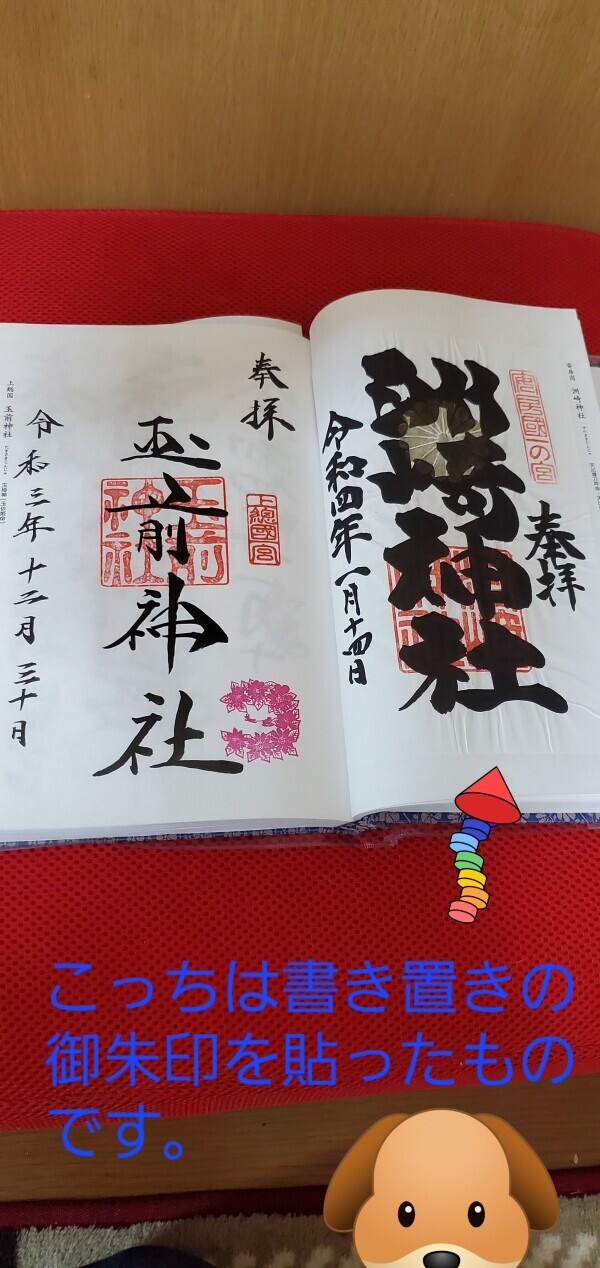 安房国 洲崎神社
安房國一の宮
奉拝
洲崎神社
令和四年一月十四日
奉拝
上総國一宮
玉前神社
玉前神社
令和三年十二月三十日
上総国 玉前神社
こっちは書き置きの
御朱印を貼ったもの
です。